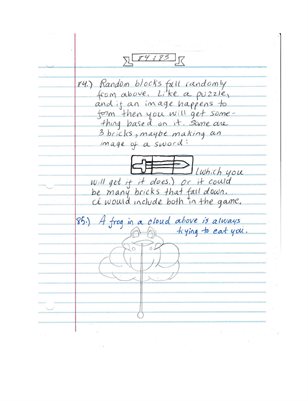 84 & 85
84.) Random blocks fall randomly
from above. Like a puzzle,
and if an image happens to
form then you will get some-
thing based on it. Some are
3 bricks, maybe making an
image of a sword:
(which you
will get if it does.) or it could
be many bricks that fall down.
would include both in the game.
85.) A frog in a cloud above is always
trying to eat you.